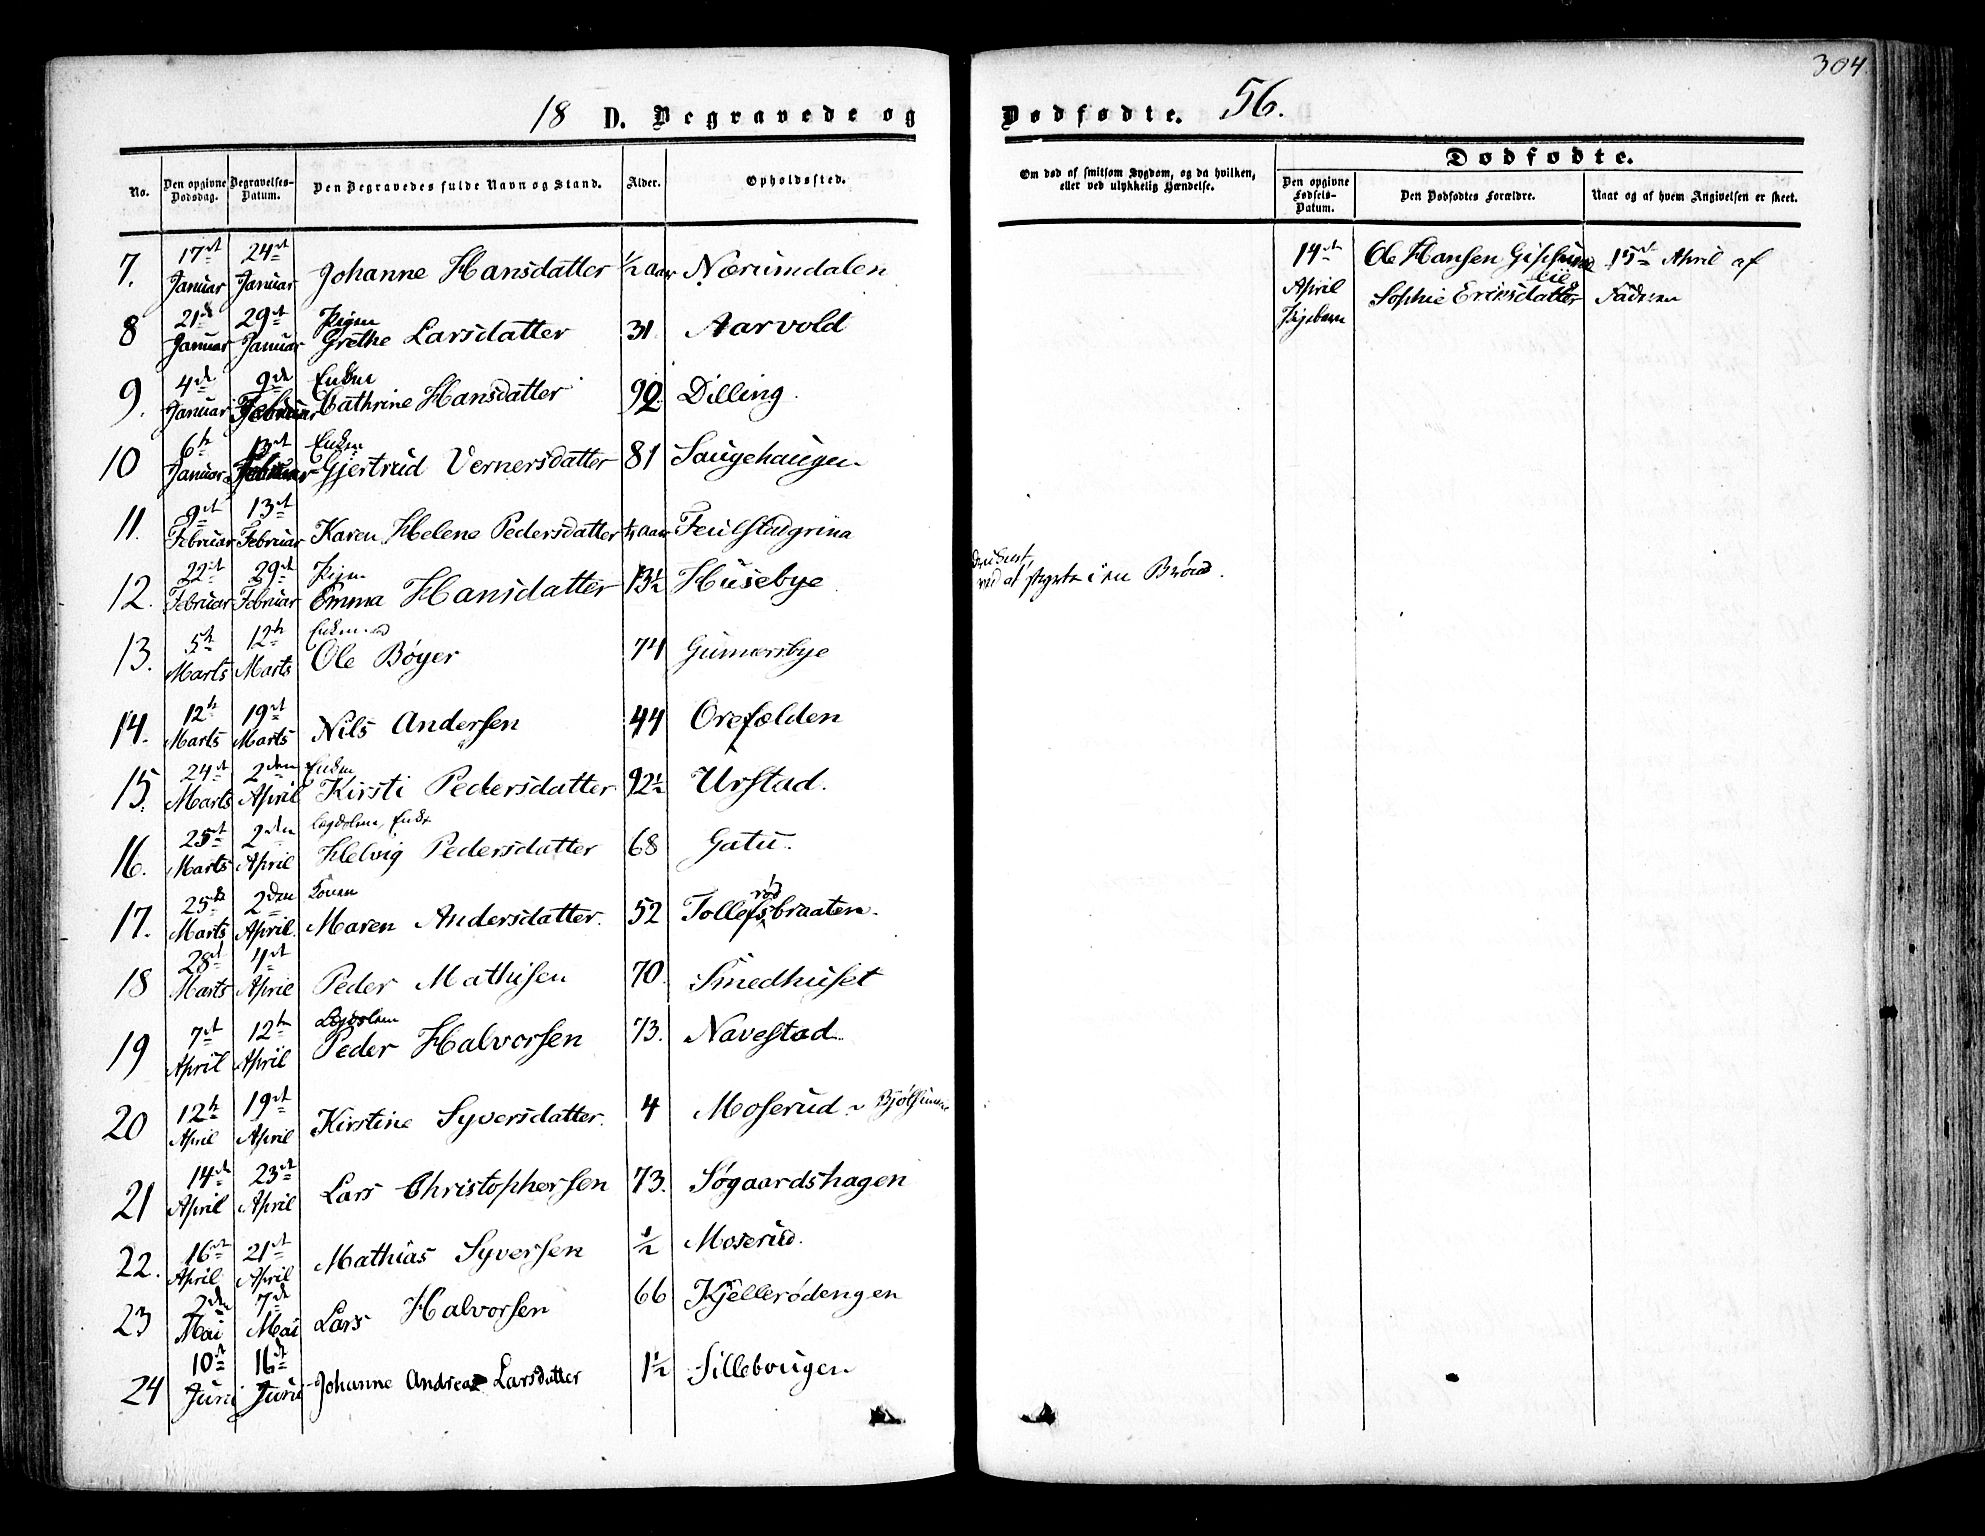 304
18 D. Begravede og Dødfødte. 56.
No. Den opgivne Dødsdag. Begravelses-Datum. Den Begravedes fulde Navn og Stand. Alder. Opholdssted.
Om død af smitsom Sygdom, og da hvilken, eller ved ulykkelig Hændelse.
Dødfødte.
Den opgivne Fødsels-Datum. Den Dødfødtes Forældre. Naar og af hvem Angivelsen er skeet.
7. 17de Januar 24de Januar Johanne Hansdatter 1/2 Aar Nærumdalen
8 21de Januar 29de Januar Pigen Grethe Larsdatter 31 Aarvold
9. 4de Januar 9de Februar Enken Cathrine Hansdatter 92 Dilling.
10 6te Januar 13de Februar Enken Gjertrud Vernersdatter 81 Saugehaugen
11. 9de Februar 13de Februar Karen Helene Pedersdatter Aar
12. 22de Februar 29de Februar Pigen Emma Hansdatter 13 1/2 Husebye ved at styrte i en Brønd.
13. 5te Marts 12te Marts Ole Böyer 74 Gunnersbye
14. 12te Marts 19de Marts Nils Andersen 44 Orefælden
15. 24de Marts 2den April Enken Kirsti Pedersdatter 92 1/2 Urstad.
16. 25de Marts 2den April Enke Helvig Pedersdatter 68 Gatu.
17. 25de Marts 2den April Konen Maren Andersdatter. 52 Tollefsrødbraaten.
18 28de Marts April Peder Mathisen 70. Smedhuset
19 7de April 12te April Peder Halvorsen 73. Navestad
20 12te April 19de April Kirstine Syversdatter. 4 Moserud
21 14de April 23de April Lars Christophersen 73. Søgaardshagen
22. 16de April 21de April Mathias Syversen 1/2 Moserud.
23 2den Mai 7de Mai Lars Halvorsen 66 Kjellerødengen
24 10de Juni 16de Juni Johanne Andrea Larsdatter 1 1/2 Sillebougen
14de April Pigebarn
Ole Hansen
Sophie Eriksdatter
15de April af Faderen